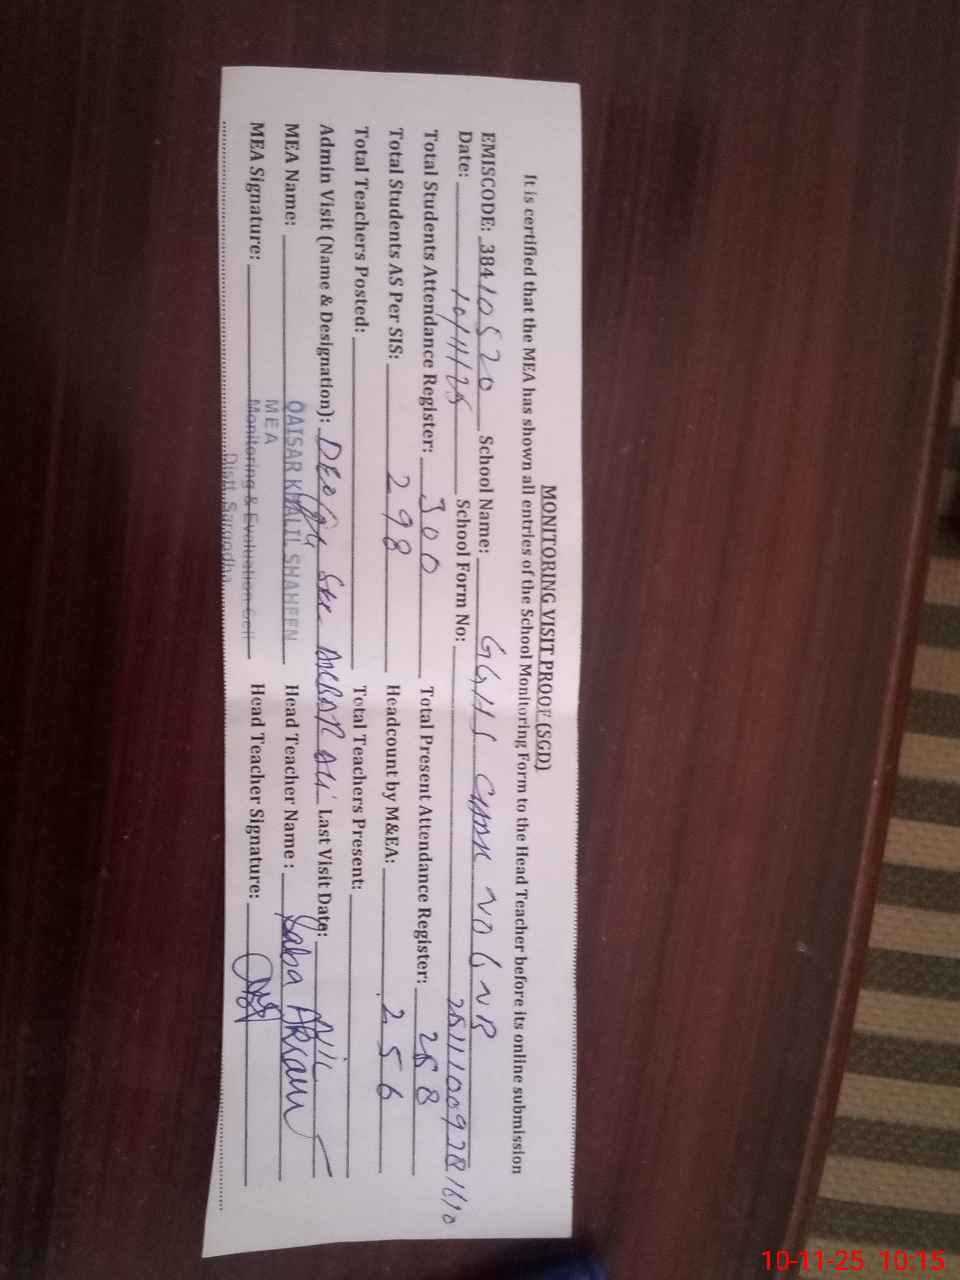 MONITORING VISIT PROOF (SGD)
It is certified that the MEA has shown all entries of the School Monitoring Form to the Head Teacher before its online submission
EMISCODE: 38410520 School Name: GGHS CHAK NO 6 NB
Date: 10/11/25 School Form No:
Total Students Attendance Register: 300 Total Present Attendance Register: 258
Total Students AS Per SIS: 298 Headcount by M&EA: 256
Total Teachers Posted: Total Teachers Present:
Admin Visit (Name & Designation): DEO AKBAR ALI Last Visit Date: NIL
MEA Name: QAISAR KHALIL SHAHEEN Head Teacher Name : Saba Akram
MEA
MEA Signature: Monitoring & Evaluation Cell Head Teacher Signature:
Distt. Sargodha.
10-11-25 10:15